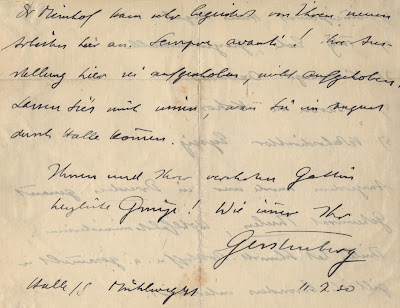 Dr Mimhof kam sehr begeistert von Ihren neuen
hier an. Semper avanti! Ihre Aus-
stellung hier sei aufgehoben, nicht aufgehoben.
Lassen Sie's mich wissen, wenn Sie im August
durch Halle kommen.
Ihnen und Ihrer verehrten Gattin
herzliche Grüsse! Wie immer Ihr
Gerstenberg
Halle/S Mühlweg